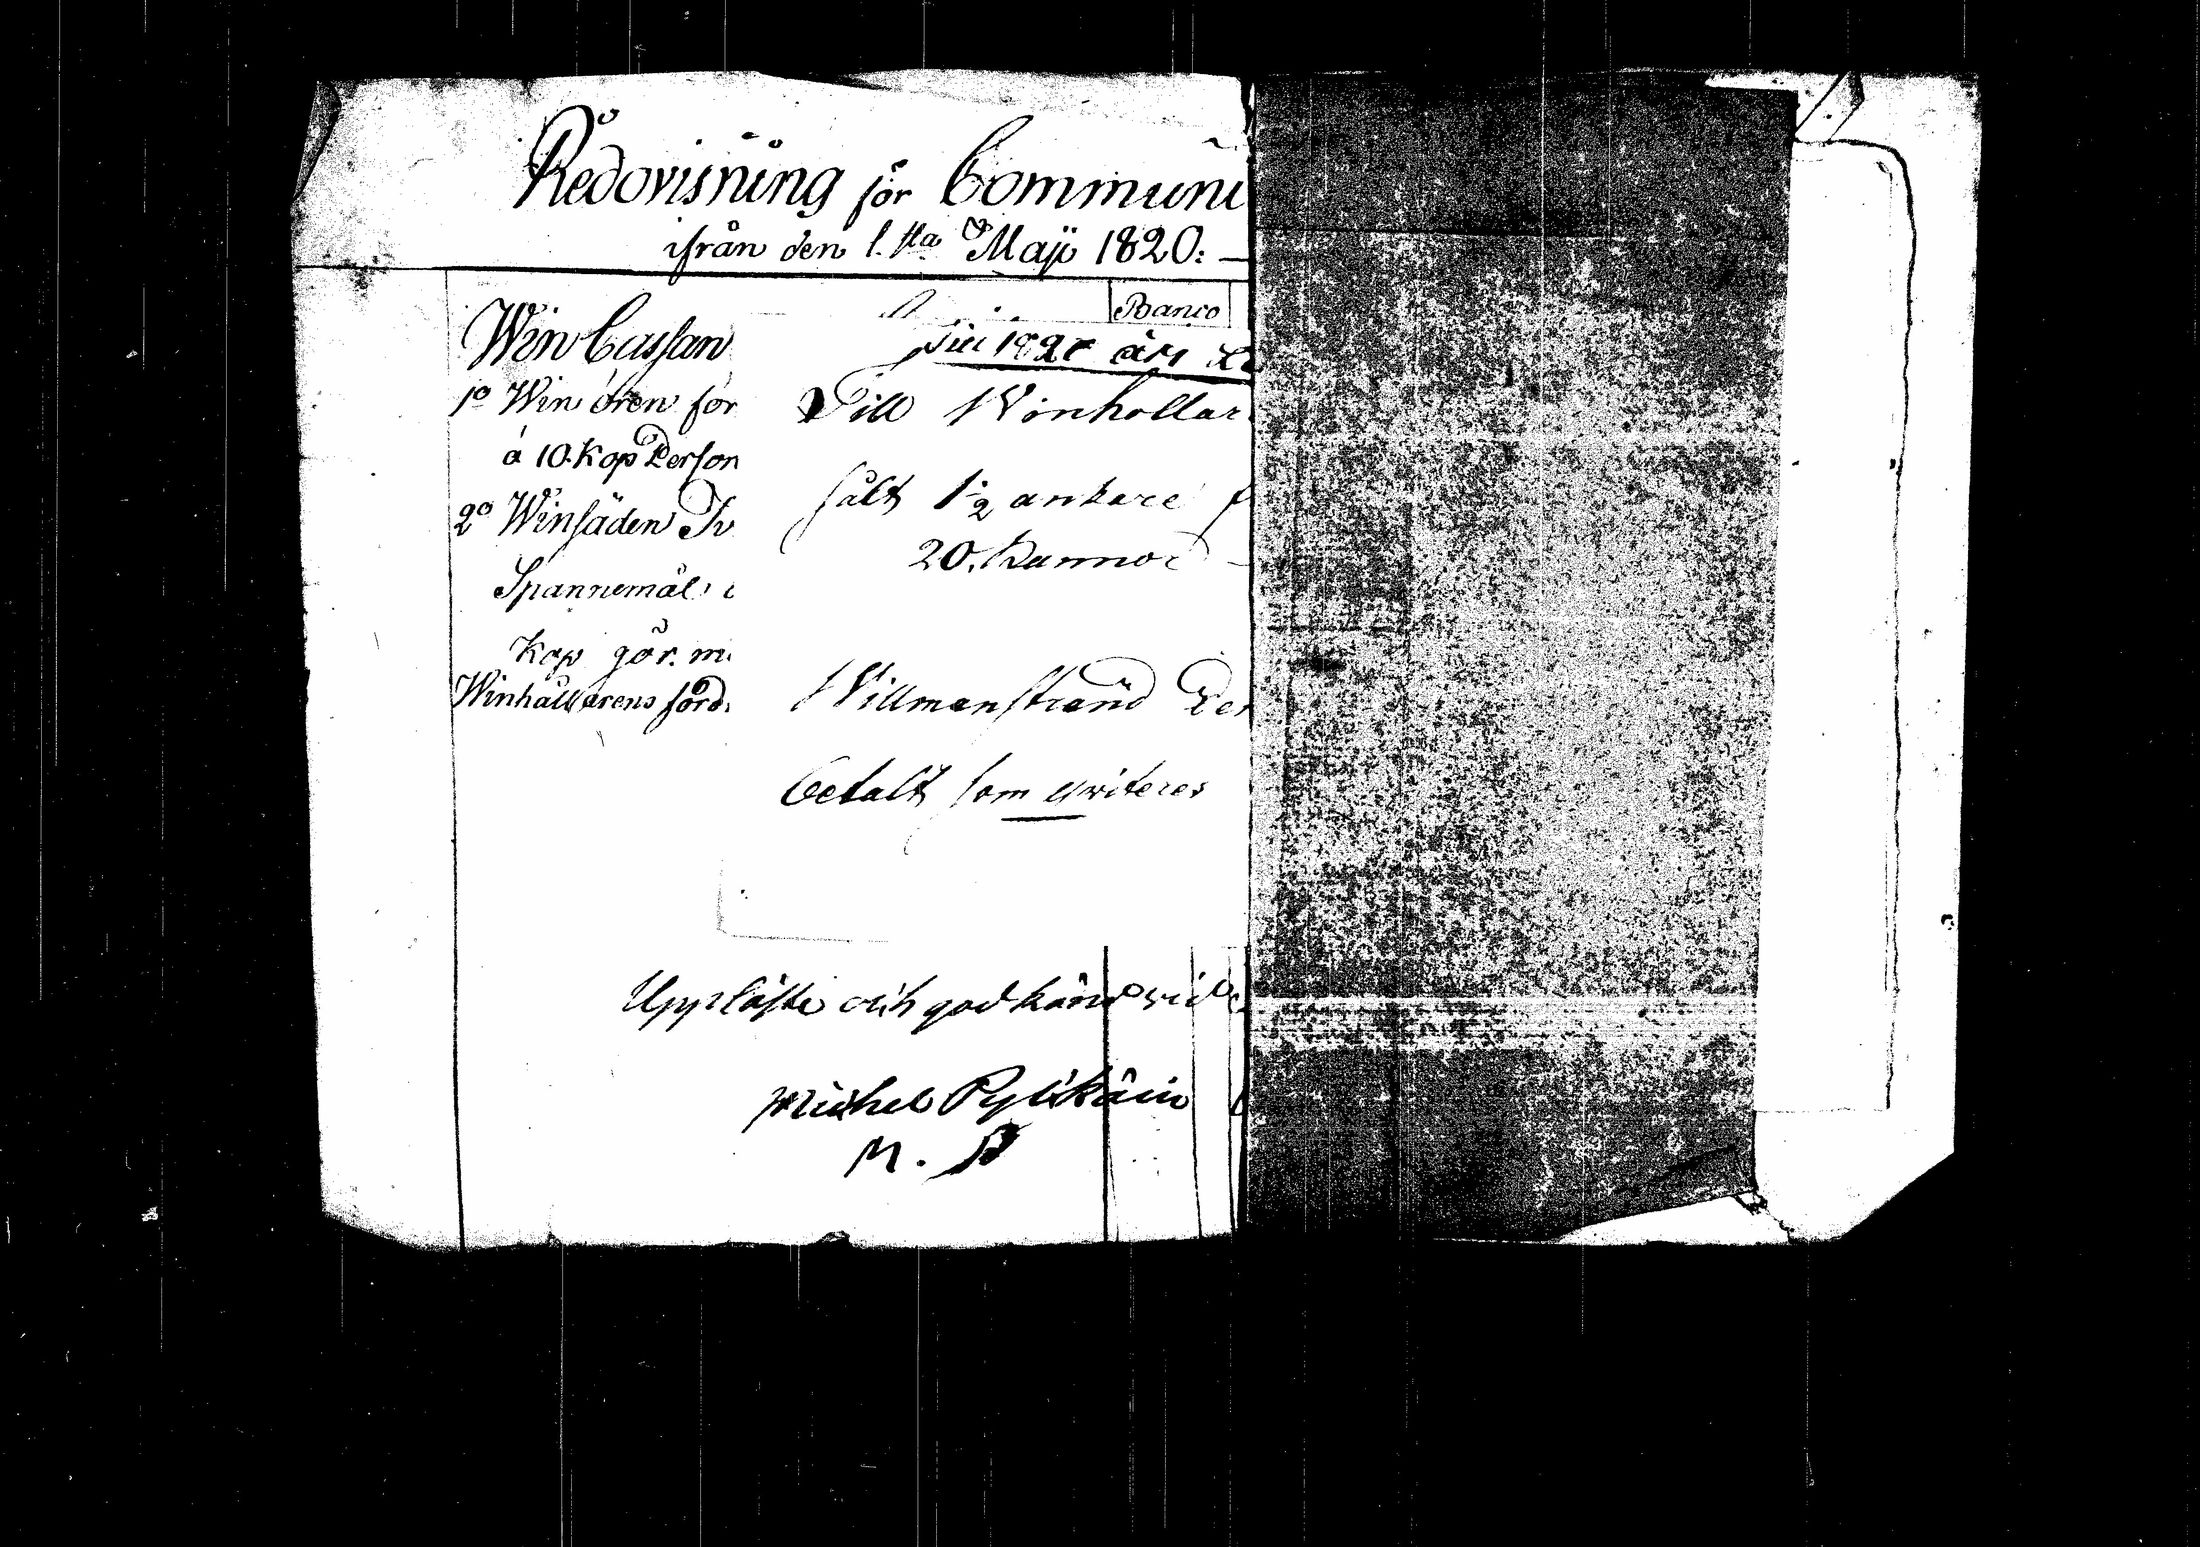 Redovisning för Communi
ifrån den 1.sta Maji 1820: —
Banco
Win Cassan
1o Win ören för
á 10. Kop Person
2o Winsäden
Spannemål
Kop gör. m
Winhållarens ford
Till 182 års
Till Winhollar
sålt 1 1/2 ankare
20. Kannor
Willmanstrand Den
betalt som qwiteres
Uppläste och godkänd wid
Michel Pylkäin
M. P